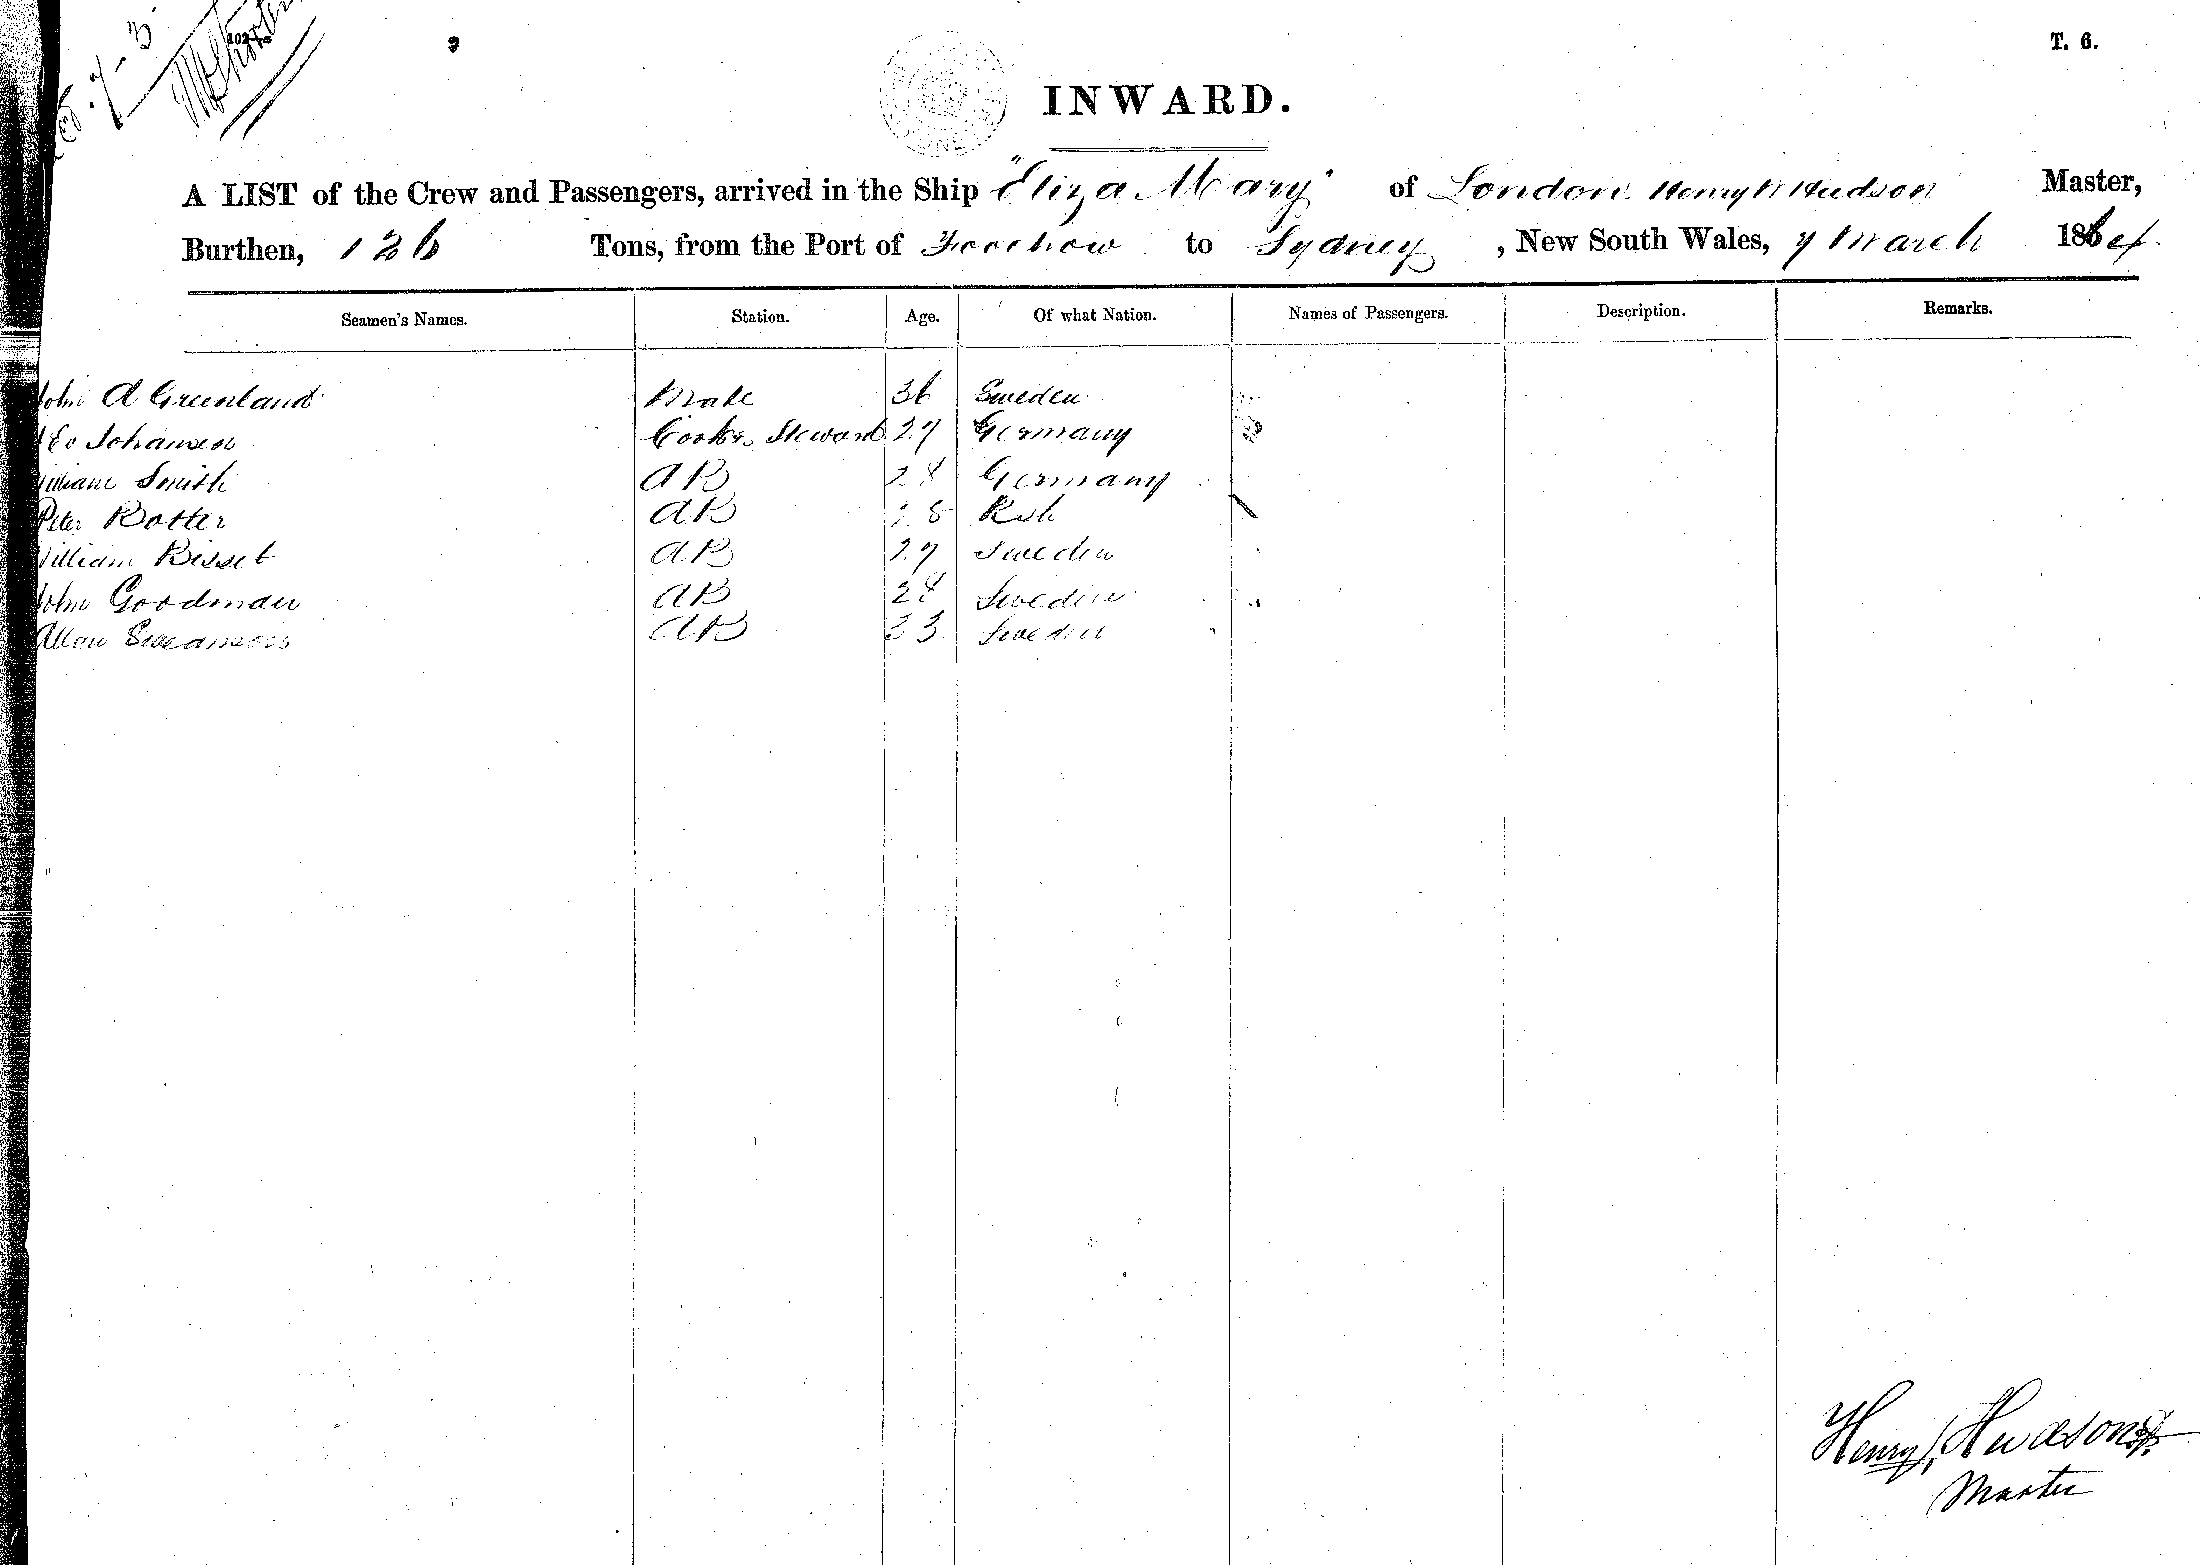 T. 6.
INWARD.
A LIST of the Crew and Passengers, arrived in the Ship "Eliza Mary" of London Henry Hudson Master,
Burthen, 126 Tons, from the Port of Foochow to Sydney, New South Wales, 7 March 1864
Seamen's Names. Station. Age. Of what Nation. Names of Passengers. Description. Remarks.
John A Greenland Mate 36 Sweden
Johansen Cook & Steward 27 Germany
William Smith AB 24 Germany
Peter Rotter AB 28
William Bisset AB 27 Sweden
John Goodman AB 24 Sweden
Allan Swanson AB 33 Sweden
Henry Hudson
Master